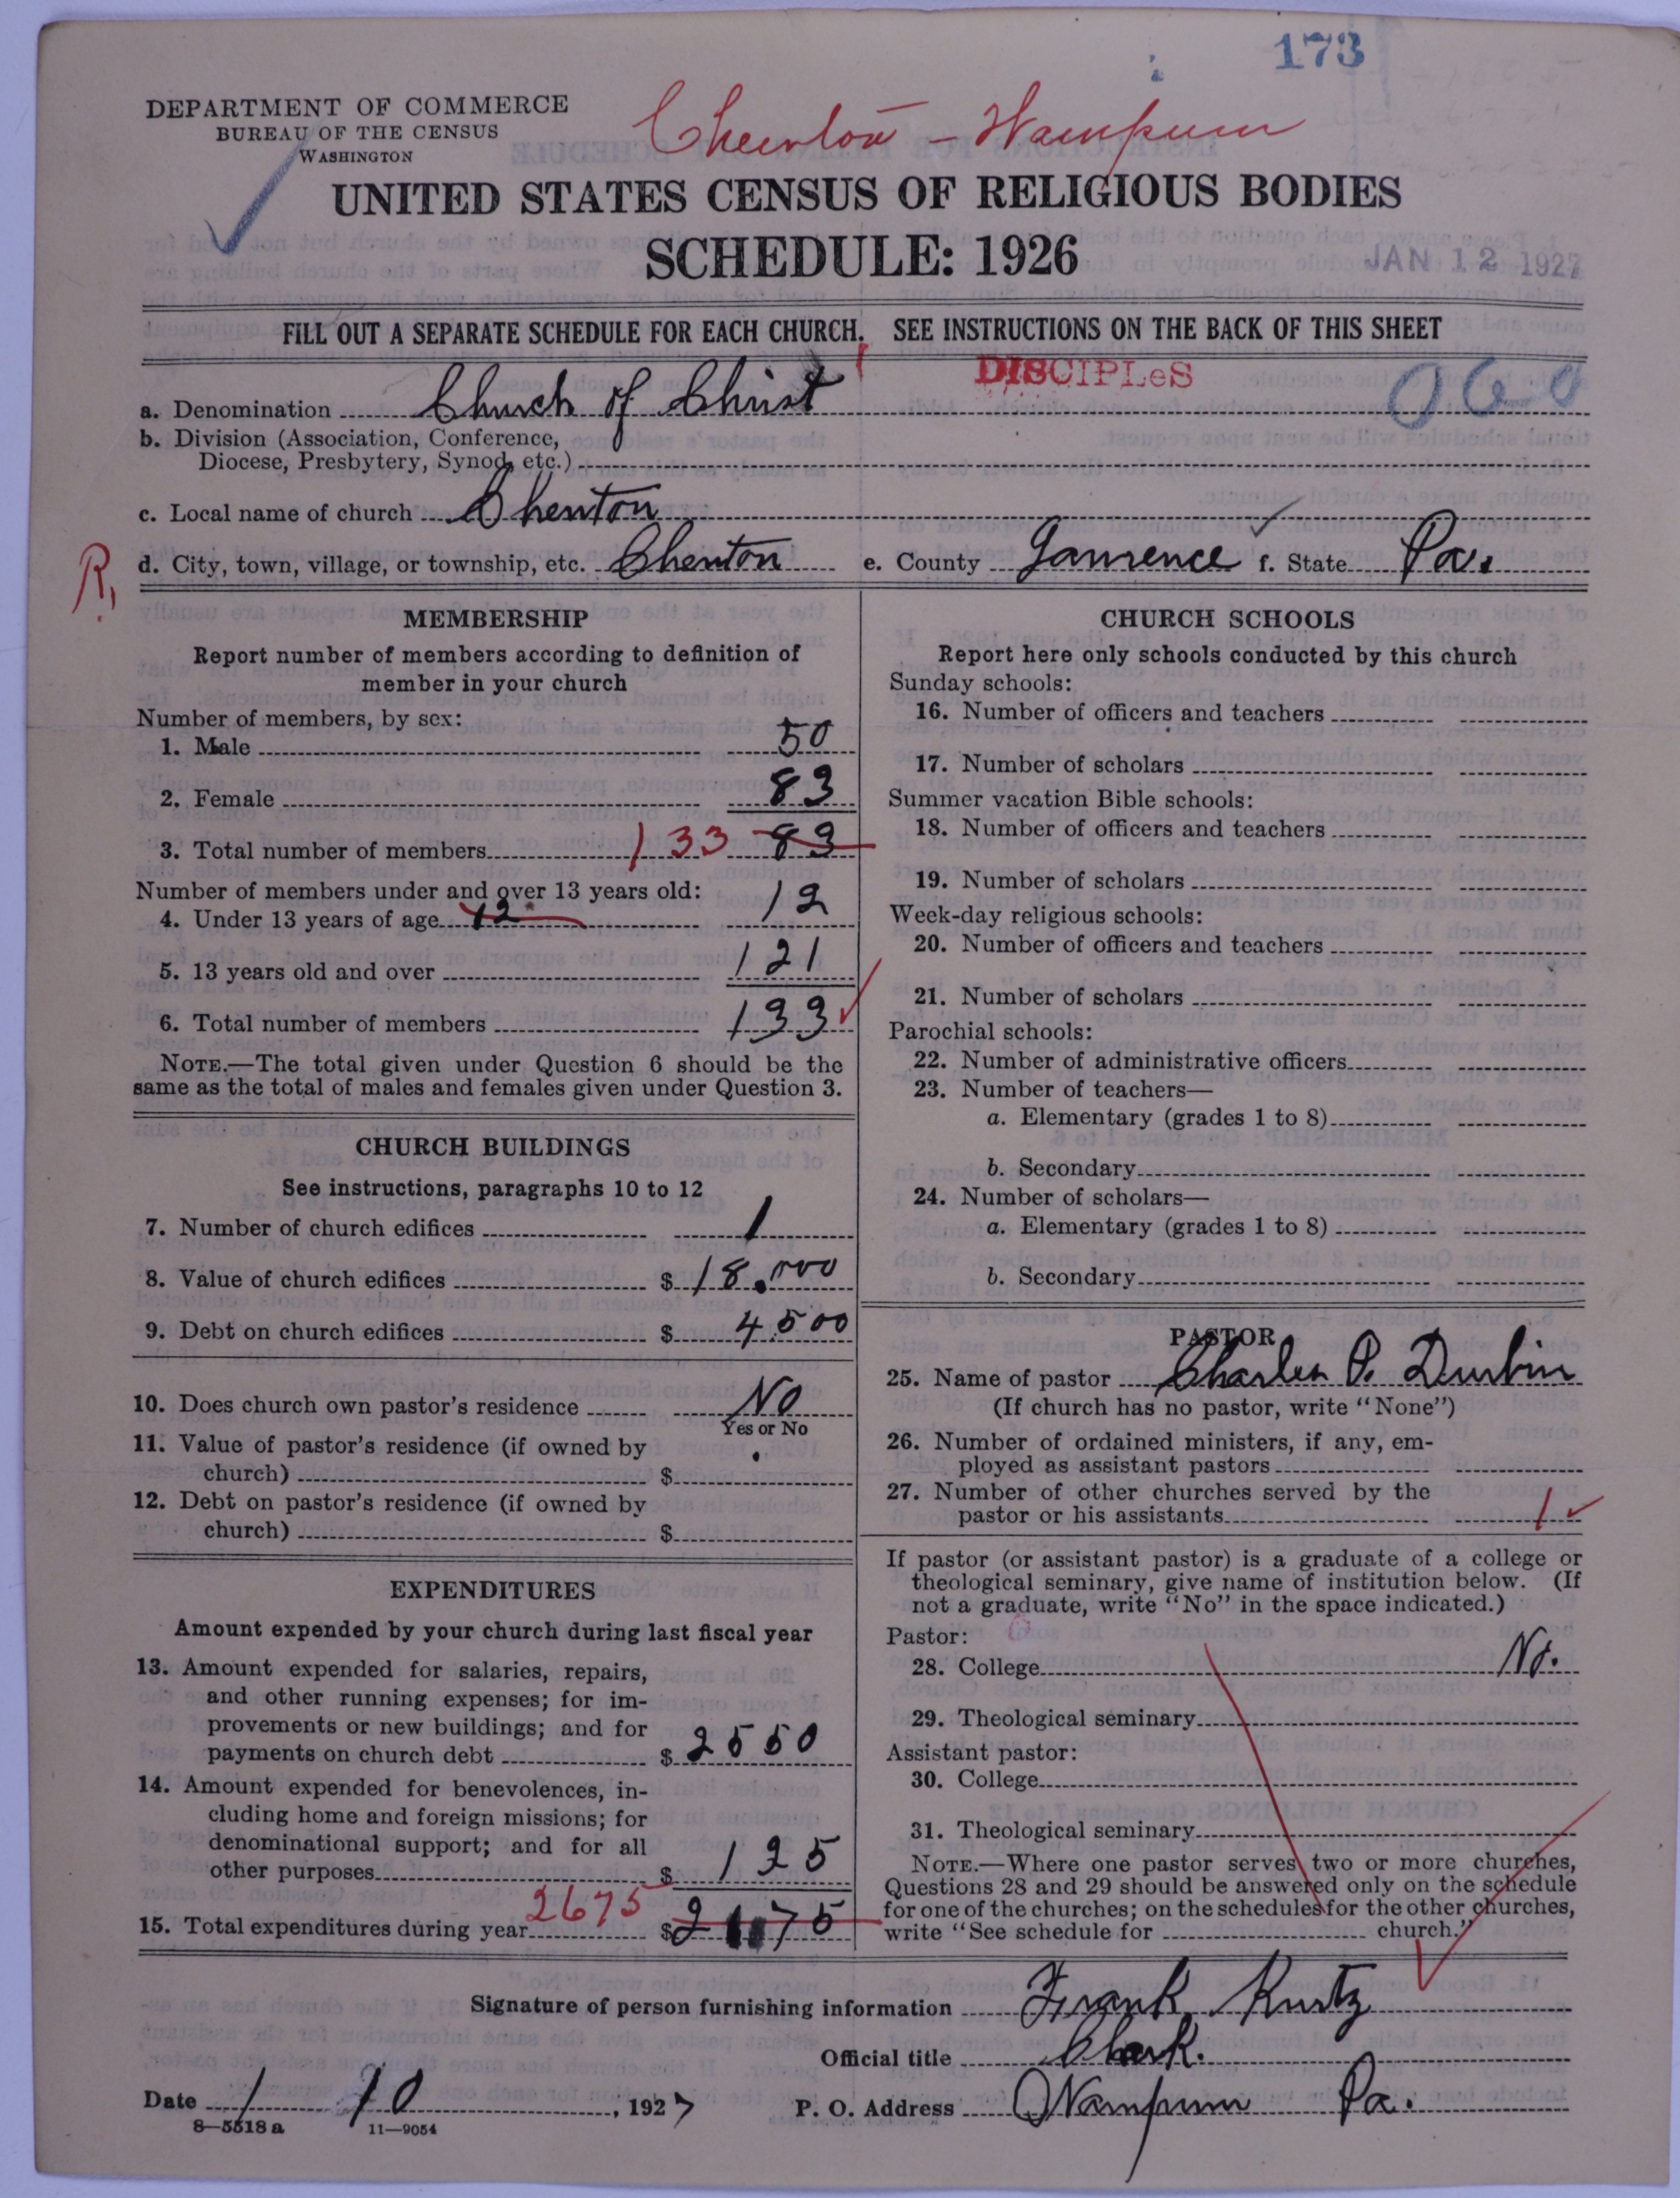 173
DEPARTMENT OF COMMERCE
BUREAU OF THE CENSUS
WASHINGTON
Chewton - Wampum
UNITED STATES CENSUS OF RELIGIOUS BODIES
SCHEDULE: 1926
JAN 12 1927
FILL OUT A SEPARATE SCHEDULE FOR EACH CHURCH. SEE INSTRUCTIONS ON THE BACK OF THIS SHEET
DISCIPLES
060
a. Denomination Church of Christ
b. Division (Association, Conference,
Diocese, Presbytery, Synod, etc.)
c. Local name of church Chewton
R,
d. City, town, village, or township, etc. Chewton e. County Lawrence f. State Pa.
MEMBERSHIP
Report number of members according to definition of
member in your church
Number of members, by sex:
1. Male 50
2. Female 83
3. Total number of members 133 83
Number of members under and over 13 years old:
4. Under 13 years of age 12 12
5. 13 years old and over 121
6. Total number of members 133
NOTE.—The total given under Question 6 should be the
same as the total of males and females given under Question 3.
CHURCH BUILDINGS
See instructions, paragraphs 10 to 12
7. Number of church edifices 1
8. Value of church edifices $ 18.000
9. Debt on church edifices $ 4500
10. Does church own pastor's residence No
Yes or No
11. Value of pastor's residence (if owned by
church) $
12. Debt on pastor's residence (if owned by
church) $
EXPENDITURES
Amount expended by your church during last fiscal year
13. Amount expended for salaries, repairs,
and other running expenses; for im-
provements or new buildings; and for
payments on church debt $ 2550
14. Amount expended for benevolences, in-
cluding home and foreign missions; for
denominational support; and for all
other purposes $ 125
15. Total expenditures during year 2675 $
CHURCH SCHOOLS
Report here only schools conducted by this church
Sunday schools:
16. Number of officers and teachers
17. Number of scholars
Summer vacation Bible schools:
18. Number of officers and teachers
19. Number of scholars
Week-day religious schools:
20. Number of officers and teachers
21. Number of scholars
Parochial schools:
22. Number of administrative officers
23. Number of teachers—
a. Elementary (grades 1 to 8)
b. Secondary
24. Number of scholars—
a. Elementary (grades 1 to 8)
b. Secondary
PASTOR
25. Name of pastor Charles P. Durbin
(If church has no pastor, write "None")
26. Number of ordained ministers, if any, em-
ployed as assistant pastors
27. Number of other churches served by the
pastor or his assistants 1
If pastor (or assistant pastor) is a graduate of a college or
theological seminary, give name of institution below. (If
not a graduate, write "No" in the space indicated.)
Pastor:
28. College No.
29. Theological seminary
Assistant pastor:
30. College
31. Theological seminary
NOTE.—Where one pastor serves two or more churches,
Questions 28 and 29 should be answered only on the schedule
for one of the churches; on the schedules for the other churches,
write "See schedule for church."
Signature of person furnishing information Frank Kurtz
Official title Clerk.
Date 1 10, 1927 P. O. Address Wampum Pa.
8—5518 a 11—9054